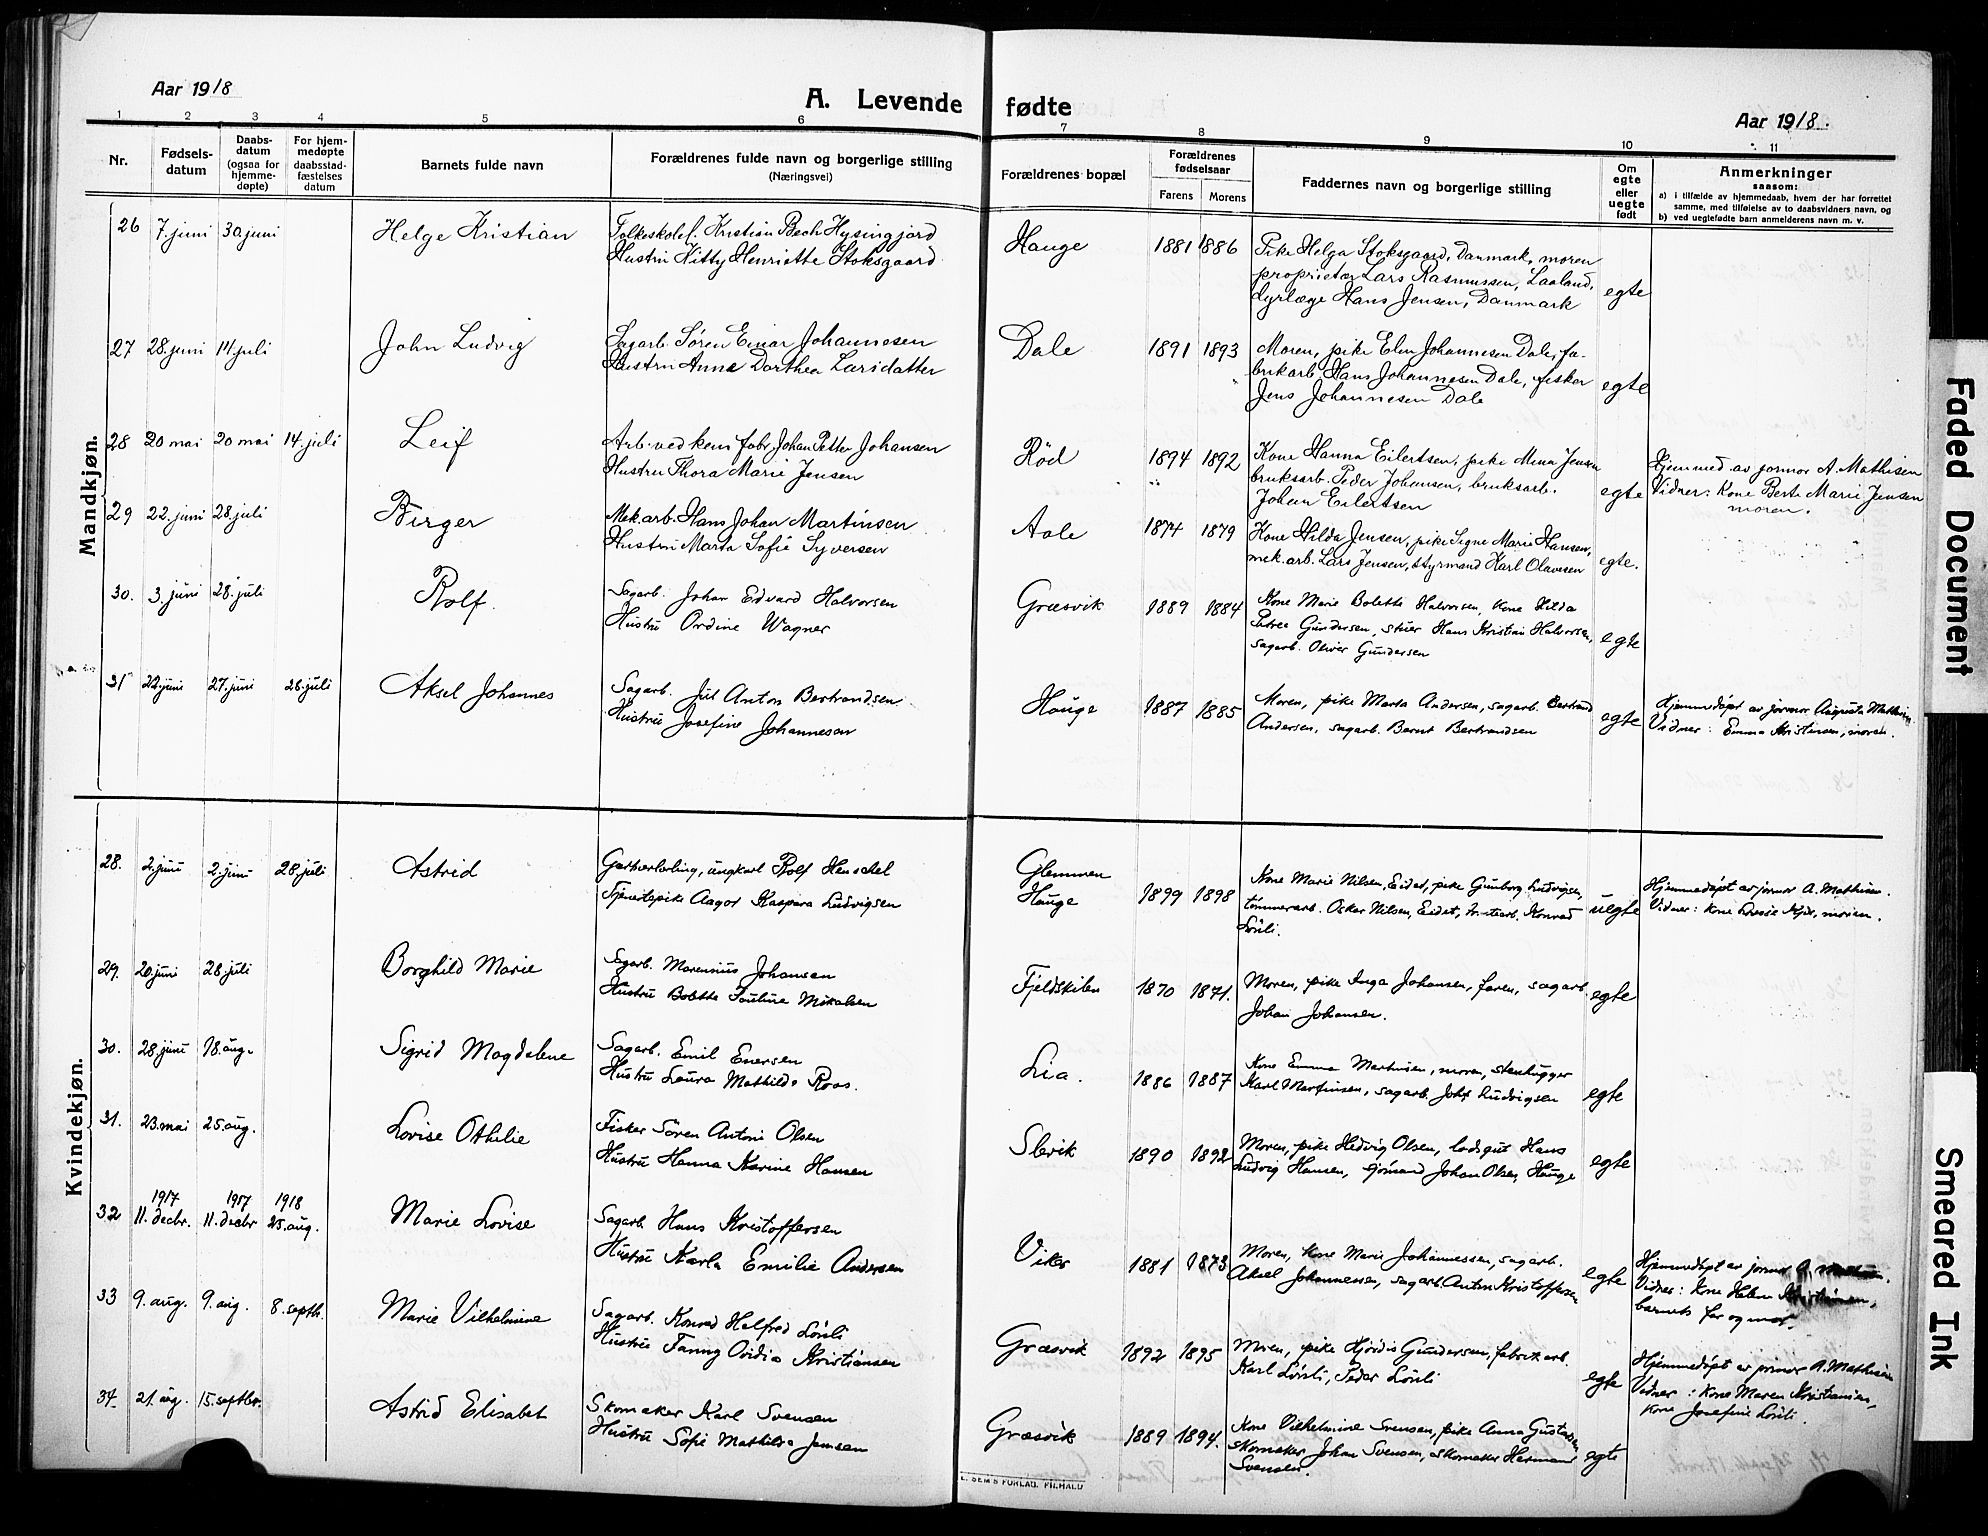 Aar 1918
A. Levende fødte
Aar 1918.
1 2 3 4 5 6 7 8 9 10 11
Nr.
Fødselsdatum
Daabsdatum (ogsaa for hjemmedøpte)
For hjemmedøpte daabsstadfæstelses datum
Barnets fulde navn
Forældrenes fulde navn og borgerlige stilling
(Næringsvei)
Forældrenes bopæl
Forældrenes fødselsaar
Farens Morens
Faddernes navn og borgerlige stilling
Om egte eller uegte født
Anmerkninger
saasom:
a) i tilfælde av hjemmedaab, hvem der har forrettet
samme, med tilføielse av to daabsvidners navn, og
b) ved uegtefødte barn anmelderens navn m. v.
Mandkjøn.
26 7. juni 30. juni Helge Kristian Folkeskolel. Kristian Bech Hysingjord Hauge 1881 1886 Pike Helga Stoksgaard, Danmark, moren
Hustru Kitty Henriette Stoksgaard proprietær Lars Rasmussen, Laaland,
dyrlæge Hans Jensen, Danmark egte
27 28. juni 14. juli John Ludvig Sagarb. Søren Einar Johannesen Dale 1891 1893 Moren, pike Elen Johannesen Dale, fa-
Hustru Anna Dorthea Larsdatter brikarb. Hans Johannesen Dale, fisker
Jens Johannesen Dale egte
28 20 mai 20 mai 14. juli Leif Arb. ved kem. fabr. Johan Petter Johansen Röd 1894 1892 Kone Hanna Eilertsen, pike Mina Jensen Hjemmed. av jormor A. Mathisen
Hustru Thora Marie Jensen bruksarb. Peder Johansen, bruksarb. egte Vidner: Kone Berte Marie Jensen
Johan Eilertsen moren.
29 22. juni 28. juli Birger Mek.arb. Hans Johan Martinsen Aale 1874 1879 Kone Hilda Jensen, pike Signe Marie Hansen,
Hustru Marta Sofie Syversen mek.arb. Lars Jensen, styrmand Karl Olavesen egte.
30. 3. juni 28. juli Rolf. Sagarb. Johan Edvard Halvorsen Græsvik 1889 1884 Kone Marie Bolette Halvorsen, Kone Hilda
Hustru Ordine Wagner Petrea Gundersen, stuer Hans Kristian Halvorsen,
sagarb. Oliver Gundersen egte
31 22 juni 27. juni 28. juli Aksel Johannes Sagarb. Jul Anton Bertrandsen Hauge 1887 1885 Moren, pike Marta Andersen, sagarb. Bertrand Hjemmedöpt av jormor Augusta Mathisen
Hustru Josefine Johannesen Andersen, sagarb. Bernt Bertrandsen egte Vidner: Emma Kristensen, moren.
Kvindekjøn.
28. 2. juni 2. juni 28. juli Astrid ungkarl Rolf Henschel Glemmen 1899 1898 Kone Marie Nilsen, Eidet, pike Gunborg Ludvigsen, Hjemmedöpt av jormor A. Mathisen.
Tjenestepike Aagot Kaspara Ludvigsen Hauge tömmerarb. Oskar Nilsen, Eidet, Konrad uegte Vidner: Kone moren.
Lösli.
29. 20. juni 28. juli Borghild Marie Sagarb. Marensius Johansen Fjeldskilen 1870 1871. Moren, pike Inga Johansen, faren, sagarb.
Hustru Bolette Pauline Mikalsen Johan Johansen. egte
30. 28. juni 18. aug. Sigrid Magdalene Sagarb. Emil Enersen Lia. 1886 1887 Kone Emma Martinsen, moren, stenhugger
Hustru Laura Mathilde Roos. Karl Martinsen, sagarb. Johs Ludvigsen egte
31. 23. mai 25. aug. Lovise Othilie Fisker Sören Antoni Olsen Slevik 1890 1892 Moren, pike Hedvig Olsen, losgut Hans
Hustru Hanna Karine Hansen Ludvig Hansen, sjömand Johan Olsen, Hauge egte
1917 1917 1918
32 11. decbr. 11. decbr 25. aug. Marie Lovise Sagarb. Hans Kristoffersen Viker 1881 1873 Moren, Kone Marie Johannessen, sagarb. Hjemmedöpt av jormor A.
Hustru Karla Emilie Andersen Aksel Johannessen, sagarb. Anton Kristoffersen egte Vidner: Kone Helene Kristiansen,
barnets far og mor.
33 9. aug. 9. aug. 8. septbr. Marie Vilhelmine Sagarb. Konrad Halfred Lösli Græsvik 1892 1895 Moren, pike Hjördis Gundersen, fabrikarb. Hjemmedöpt av jormor A. Mathisen
Hustru Fanny Ovidia Kristiansen Karl Lösli, Peder Lösli egte Vidner: Kone Maren Kristiansen,
Kone Josefine Lösli.
34. 21. aug. 15. septbr. Astrid Elisabet Skomaker Karl Svensen Græsvik 1889 1894. Kone Vilhelmine Svensen, pike Anna Gustavsen,
Hustru Sofie Mathilde Jensen skomaker Johan Svensen, skomaker Herman
Svensen. egte
E. SEM'S FORLAG, F.HALD
Faded Document
Smeared Ink